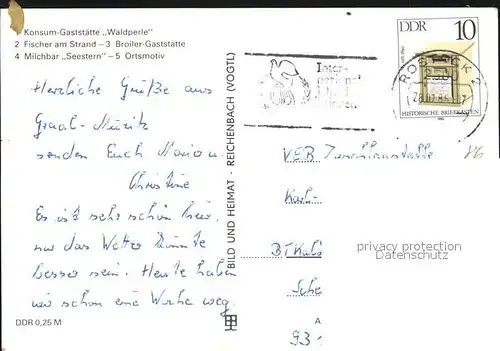 Konsum-Gaststätte „Waldperle"
2 Fischer am Strand – 3 Broiler-Gaststätte
4 Milchbar „Seestern" – 5 Ortsmotiv
Herzliche Grüße aus
Graal-Müritz
senden Euch Marion
Christine
Es ist sehr schön hier,
nur das Wetter könnte
besser sein. Heute haben
wir schon eine Woche weg.
DDR 0,25 M
BILD UND HEIMAT · REICHENBACH (VOGTL)
DDR 10
HISTORISCHE BRIEFKÄSTEN
ROSTOCK 2
VEB
Karl-
privacy protection
Datenschutz
A